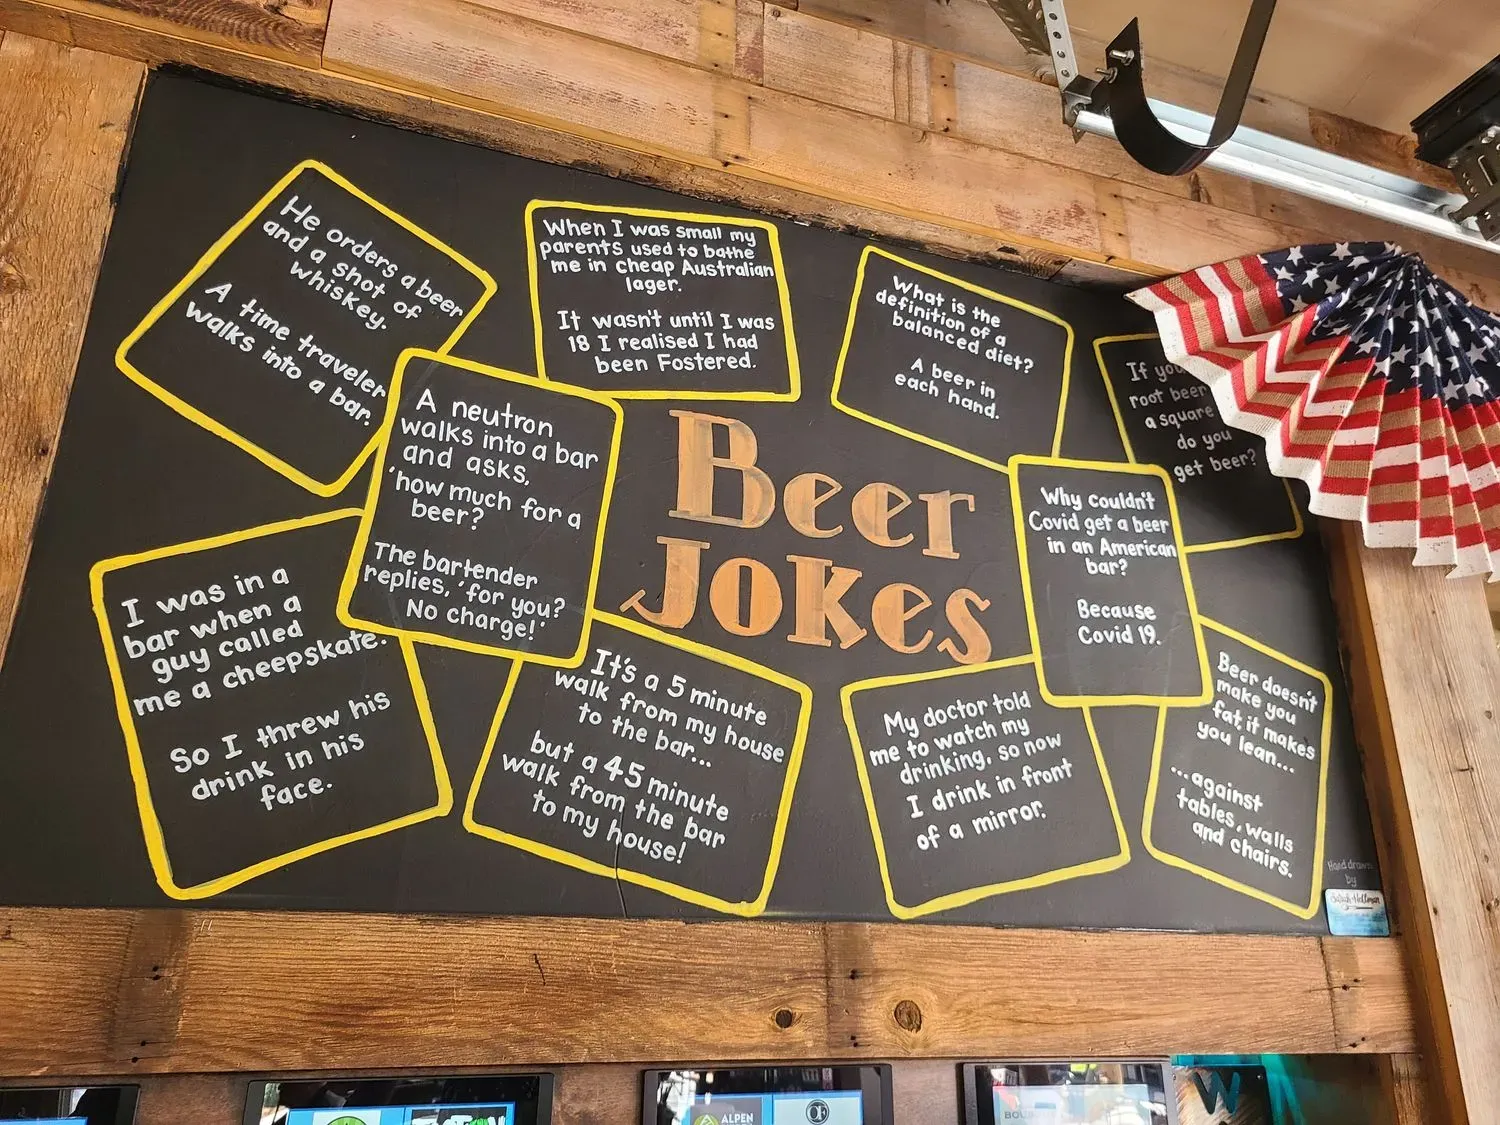 He orders a beer
and a shot of
whiskey.
A time traveler
walks into a bar.
When I was small my
parents used to bathe
me in cheap Australian
lager.
It wasn't until I was
18 I realised I had
been Fostered.
What is the
definition of a
balanced diet?
A beer in
each hand.
If you
root beer
a square
do you
get beer?
A neutron
walks into a bar
and asks,
'how much for a
beer?
The bartender
replies, 'for you?
No charge!'
Beer
Jokes
Why couldn't
Covid get a beer
in an American
bar?
Because
Covid 19.
I was in a
bar when a
guy called
me a cheepskate.
So I threw his
drink in his
face.
It's a 5 minute
walk from my house
to the bar...
but a 45 minute
walk from the bar
to my house!
My doctor told
me to watch my
drinking, so now
I drink in front
of a mirror.
Beer doesn't
make you
fat it makes
you lean...
...against
tables, walls
and chairs.
Hand drawn
by
Sarah Hellman
ALPEN
OF
W